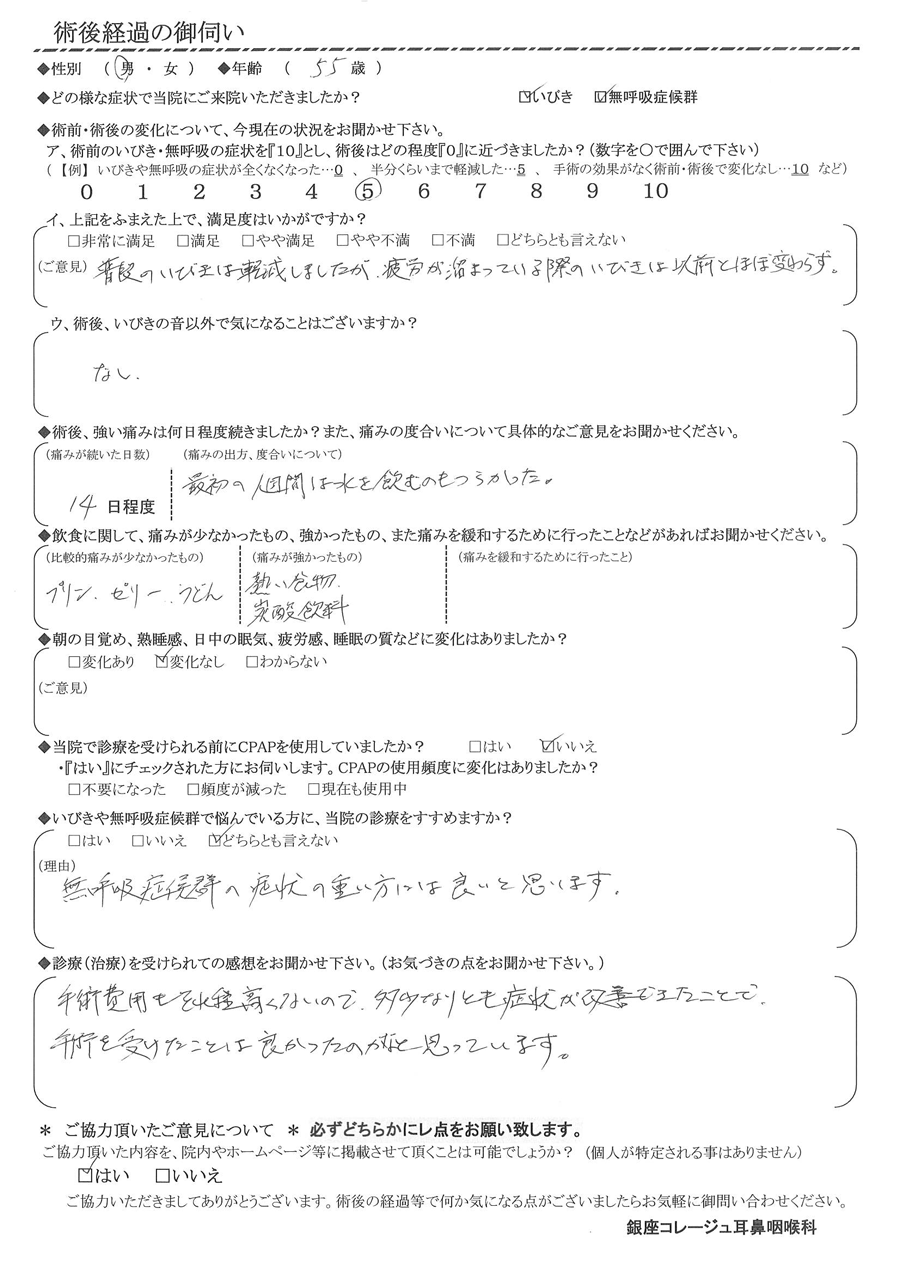 術後経過の御伺い
◆性別 ( 男 ・ 女 ) ◆年齢 ( 55 歳 )
◆どの様な症状で当院にご来院いただきましたか? ☑いびき ☑無呼吸症候群
◆術前・術後の変化について、今現在の状況をお聞かせ下さい。
ア、術前のいびき・無呼吸の症状を『10』とし、術後はどの程度『0』に近づきましたか?(数字を〇で囲んで下さい)
(【例】 いびきや無呼吸の症状が全くなくなった…0 、 半分くらいまで軽減した…5 、 手術の効果がなく術前・術後で変化なし…10 など)
0 1 2 3 4 5 6 7 8 9 10
イ、上記をふまえた上で、満足度はいかがですか?
□非常に満足 □満足 □やや満足 □やや不満 □不満 □どちらとも言えない
(ご意見) 普段のいびきは軽減しましたが、疲労が溜まっている際のいびきは以前とほぼ変わらず。
ウ、術後、いびきの音以外で気になることはございますか?
なし.
◆術後、強い痛みは何日程度続きましたか?また、痛みの度合いについて具体的なご意見をお聞かせください。
(痛みが続いた日数) (痛みの出方、度合いについて)
14 日程度 最初の1週間は水を飲むのもつらかった。
◆飲食に関して、痛みが少なかったもの、強かったもの、また痛みを緩和するために行ったことなどがあればお聞かせください。
(比較的痛みが少なかったもの) (痛みが強かったもの) (痛みを緩和するために行ったこと)
プリン、ゼリー、うどん 熱い食物、
炭酸飲料
◆朝の目覚め、熟睡感、日中の眠気、疲労感、睡眠の質などに変化はありましたか?
□変化あり ☑変化なし □わからない
(ご意見)
◆当院で診療を受けられる前にCPAPを使用していましたか? □はい ☑いいえ
・『はい』にチェックされた方にお伺いします。CPAPの使用頻度に変化はありましたか?
□不要になった □頻度が減った □現在も使用中
◆いびきや無呼吸症候群で悩んでいる方に、当院の診療をすすめますか?
□はい □いいえ ☑どちらとも言えない
(理由)
無呼吸症候群の症状の重い方には良いと思います.
◆診療(治療)を受けられての感想をお聞かせ下さい。(お気づきの点をお聞かせ下さい。)
手術費用もそれ程高くないので、多少なりとも症状が改善できたことで、
手術を受けたことは良かったのかなと思っています。
＊ ご協力頂いたご意見について ＊ 必ずどちらかにレ点をお願い致します。
ご協力頂いた内容を、院内やホームページ等に掲載させて頂くことは可能でしょうか? (個人が特定される事はありません)
☑はい □いいえ
ご協力いただきましてありがとうございます。術後の経過等で何か気になる点がございましたらお気軽に御問い合わせください。
銀座コレージュ耳鼻咽喉科